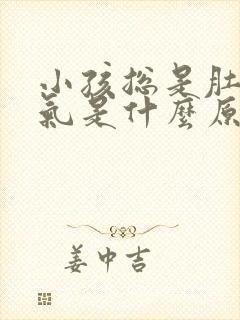 小孩总是肚
氣是什麼原
姜中吉